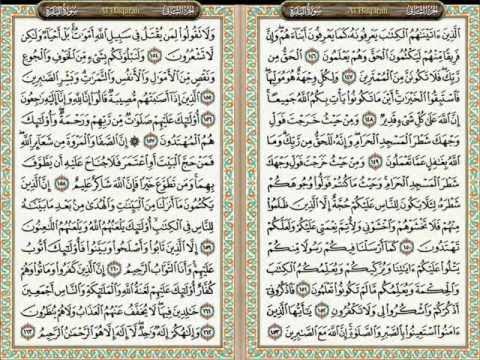 سُورَةُ البَقَرَةِ
Al Baqarah
الجُزْءُ الثَّانِي
الَّذِينَ ءَاتَيْنَٰهُمُ الْكِتَٰبَ يَعْرِفُونَهُۥ كَمَا يَعْرِفُونَ أَبْنَآءَهُمْ وَإِنَّ
فَرِيقًا مِّنْهُمْ لَيَكْتُمُونَ الْحَقَّ وَهُمْ يَعْلَمُونَ ١٤٦ الْحَقُّ مِن
رَّبِّكَ فَلَا تَكُونَنَّ مِنَ الْمُمْتَرِينَ ١٤٧ وَلِكُلٍّ وِجْهَةٌ هُوَ مُوَلِّيهَا
فَاسْتَبِقُوا الْخَيْرَٰتِ أَيْنَ مَا تَكُونُوا يَأْتِ بِكُمُ اللَّهُ جَمِيعًا
إِنَّ اللَّهَ عَلَىٰ كُلِّ شَيْءٍ قَدِيرٌ ١٤٨ وَمِنْ حَيْثُ خَرَجْتَ فَوَلِّ
وَجْهَكَ شَطْرَ الْمَسْجِدِ الْحَرَامِ وَإِنَّهُۥ لَلْحَقُّ مِن رَّبِّكَ وَمَا
اللَّهُ بِغَٰفِلٍ عَمَّا تَعْمَلُونَ ١٤٩ وَمِنْ حَيْثُ خَرَجْتَ فَوَلِّ وَجْهَكَ
شَطْرَ الْمَسْجِدِ الْحَرَامِ وَحَيْثُ مَا كُنتُمْ فَوَلُّوا وُجُوهَكُمْ
شَطْرَهُۥ لِئَلَّا يَكُونَ لِلنَّاسِ عَلَيْكُمْ حُجَّةٌ إِلَّا الَّذِينَ ظَلَمُوا
مِنْهُمْ فَلَا تَخْشَوْهُمْ وَاخْشَوْنِي وَلِأُتِمَّ نِعْمَتِي عَلَيْكُمْ وَلَعَلَّكُمْ
تَهْتَدُونَ ١٥٠ كَمَآ أَرْسَلْنَا فِيكُمْ رَسُولًا مِّنكُمْ
يَتْلُوا عَلَيْكُمْ ءَايَٰتِنَا وَيُزَكِّيكُمْ وَيُعَلِّمُكُمُ الْكِتَٰبَ
وَالْحِكْمَةَ وَيُعَلِّمُكُم مَّا لَمْ تَكُونُوا تَعْلَمُونَ ١٥١ فَاذْكُرُونِيٓ
أَذْكُرْكُمْ وَاشْكُرُوا لِي وَلَا تَكْفُرُونِ ١٥٢ يَٰٓأَيُّهَا الَّذِينَ
ءَامَنُوا اسْتَعِينُوا بِالصَّبْرِ وَالصَّلَوٰةِ إِنَّ اللَّهَ مَعَ الصَّٰبِرِينَ ١٥٣
سُورَةُ البَقَرَةِ
Al Baqarah
الجُزْءُ الثَّانِي
وَلَا تَقُولُوا لِمَن يُقْتَلُ فِي سَبِيلِ اللَّهِ أَمْوَٰتٌۢ بَلْ أَحْيَآءٌ وَلَٰكِن
لَّا تَشْعُرُونَ ١٥٤ وَلَنَبْلُوَنَّكُم بِشَيْءٍ مِّنَ الْخَوْفِ وَالْجُوعِ
وَنَقْصٍ مِّنَ الْأَمْوَٰلِ وَالْأَنفُسِ وَالثَّمَرَٰتِ وَبَشِّرِ الصَّٰبِرِينَ
١٥٥ الَّذِينَ إِذَآ أَصَٰبَتْهُم مُّصِيبَةٌ قَالُوٓا إِنَّا لِلَّهِ وَإِنَّآ إِلَيْهِ رَٰجِعُونَ
١٥٦ أُو۟لَٰٓئِكَ عَلَيْهِمْ صَلَوَٰتٌ مِّن رَّبِّهِمْ وَرَحْمَةٌ وَأُو۟لَٰٓئِكَ
هُمُ الْمُهْتَدُونَ ١٥٧ ۞ إِنَّ الصَّفَا وَالْمَرْوَةَ مِن شَعَآئِرِ اللَّهِ
فَمَنْ حَجَّ الْبَيْتَ أَوِ اعْتَمَرَ فَلَا جُنَاحَ عَلَيْهِ أَن يَطَّوَّفَ
بِهِمَا وَمَن تَطَوَّعَ خَيْرًا فَإِنَّ اللَّهَ شَاكِرٌ عَلِيمٌ ١٥٨ إِنَّ الَّذِينَ
يَكْتُمُونَ مَآ أَنزَلْنَا مِنَ الْبَيِّنَٰتِ وَالْهُدَىٰ مِنۢ بَعْدِ مَا بَيَّنَّٰهُ
لِلنَّاسِ فِي الْكِتَٰبِ أُو۟لَٰٓئِكَ يَلْعَنُهُمُ اللَّهُ وَيَلْعَنُهُمُ اللَّٰعِنُونَ
١٥٩ إِلَّا الَّذِينَ تَابُوا وَأَصْلَحُوا وَبَيَّنُوا فَأُو۟لَٰٓئِكَ أَتُوبُ
عَلَيْهِمْ وَأَنَا التَّوَّابُ الرَّحِيمُ ١٦٠ إِنَّ الَّذِينَ كَفَرُوا وَمَاتُوا وَهُمْ
كُفَّارٌ أُو۟لَٰٓئِكَ عَلَيْهِمْ لَعْنَةُ اللَّهِ وَالْمَلَٰٓئِكَةِ وَالنَّاسِ أَجْمَعِينَ
١٦١ خَٰلِدِينَ فِيهَا لَا يُخَفَّفُ عَنْهُمُ الْعَذَابُ وَلَا هُمْ يُنظَرُونَ
١٦٢ وَإِلَٰهُكُمْ إِلَٰهٌ وَٰحِدٌ لَّآ إِلَٰهَ إِلَّا هُوَ الرَّحْمَٰنُ الرَّحِيمُ ١٦٣